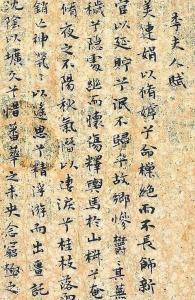 李夫人賦
美連娟以脩嫮兮命樔絕而不長飾新
宮以延貯兮泯不歸乎故鄉慘鬱鬱其蕪
穢兮隱處幽而懷傷釋輿馬於山椒兮奄
脩夜之不陽秋氣憯以淒淚兮桂枝落而
銷亡神煢煢以遙思兮精浮游而出畺託
沈陰以壙久兮惜蕃華之未央念窮極之